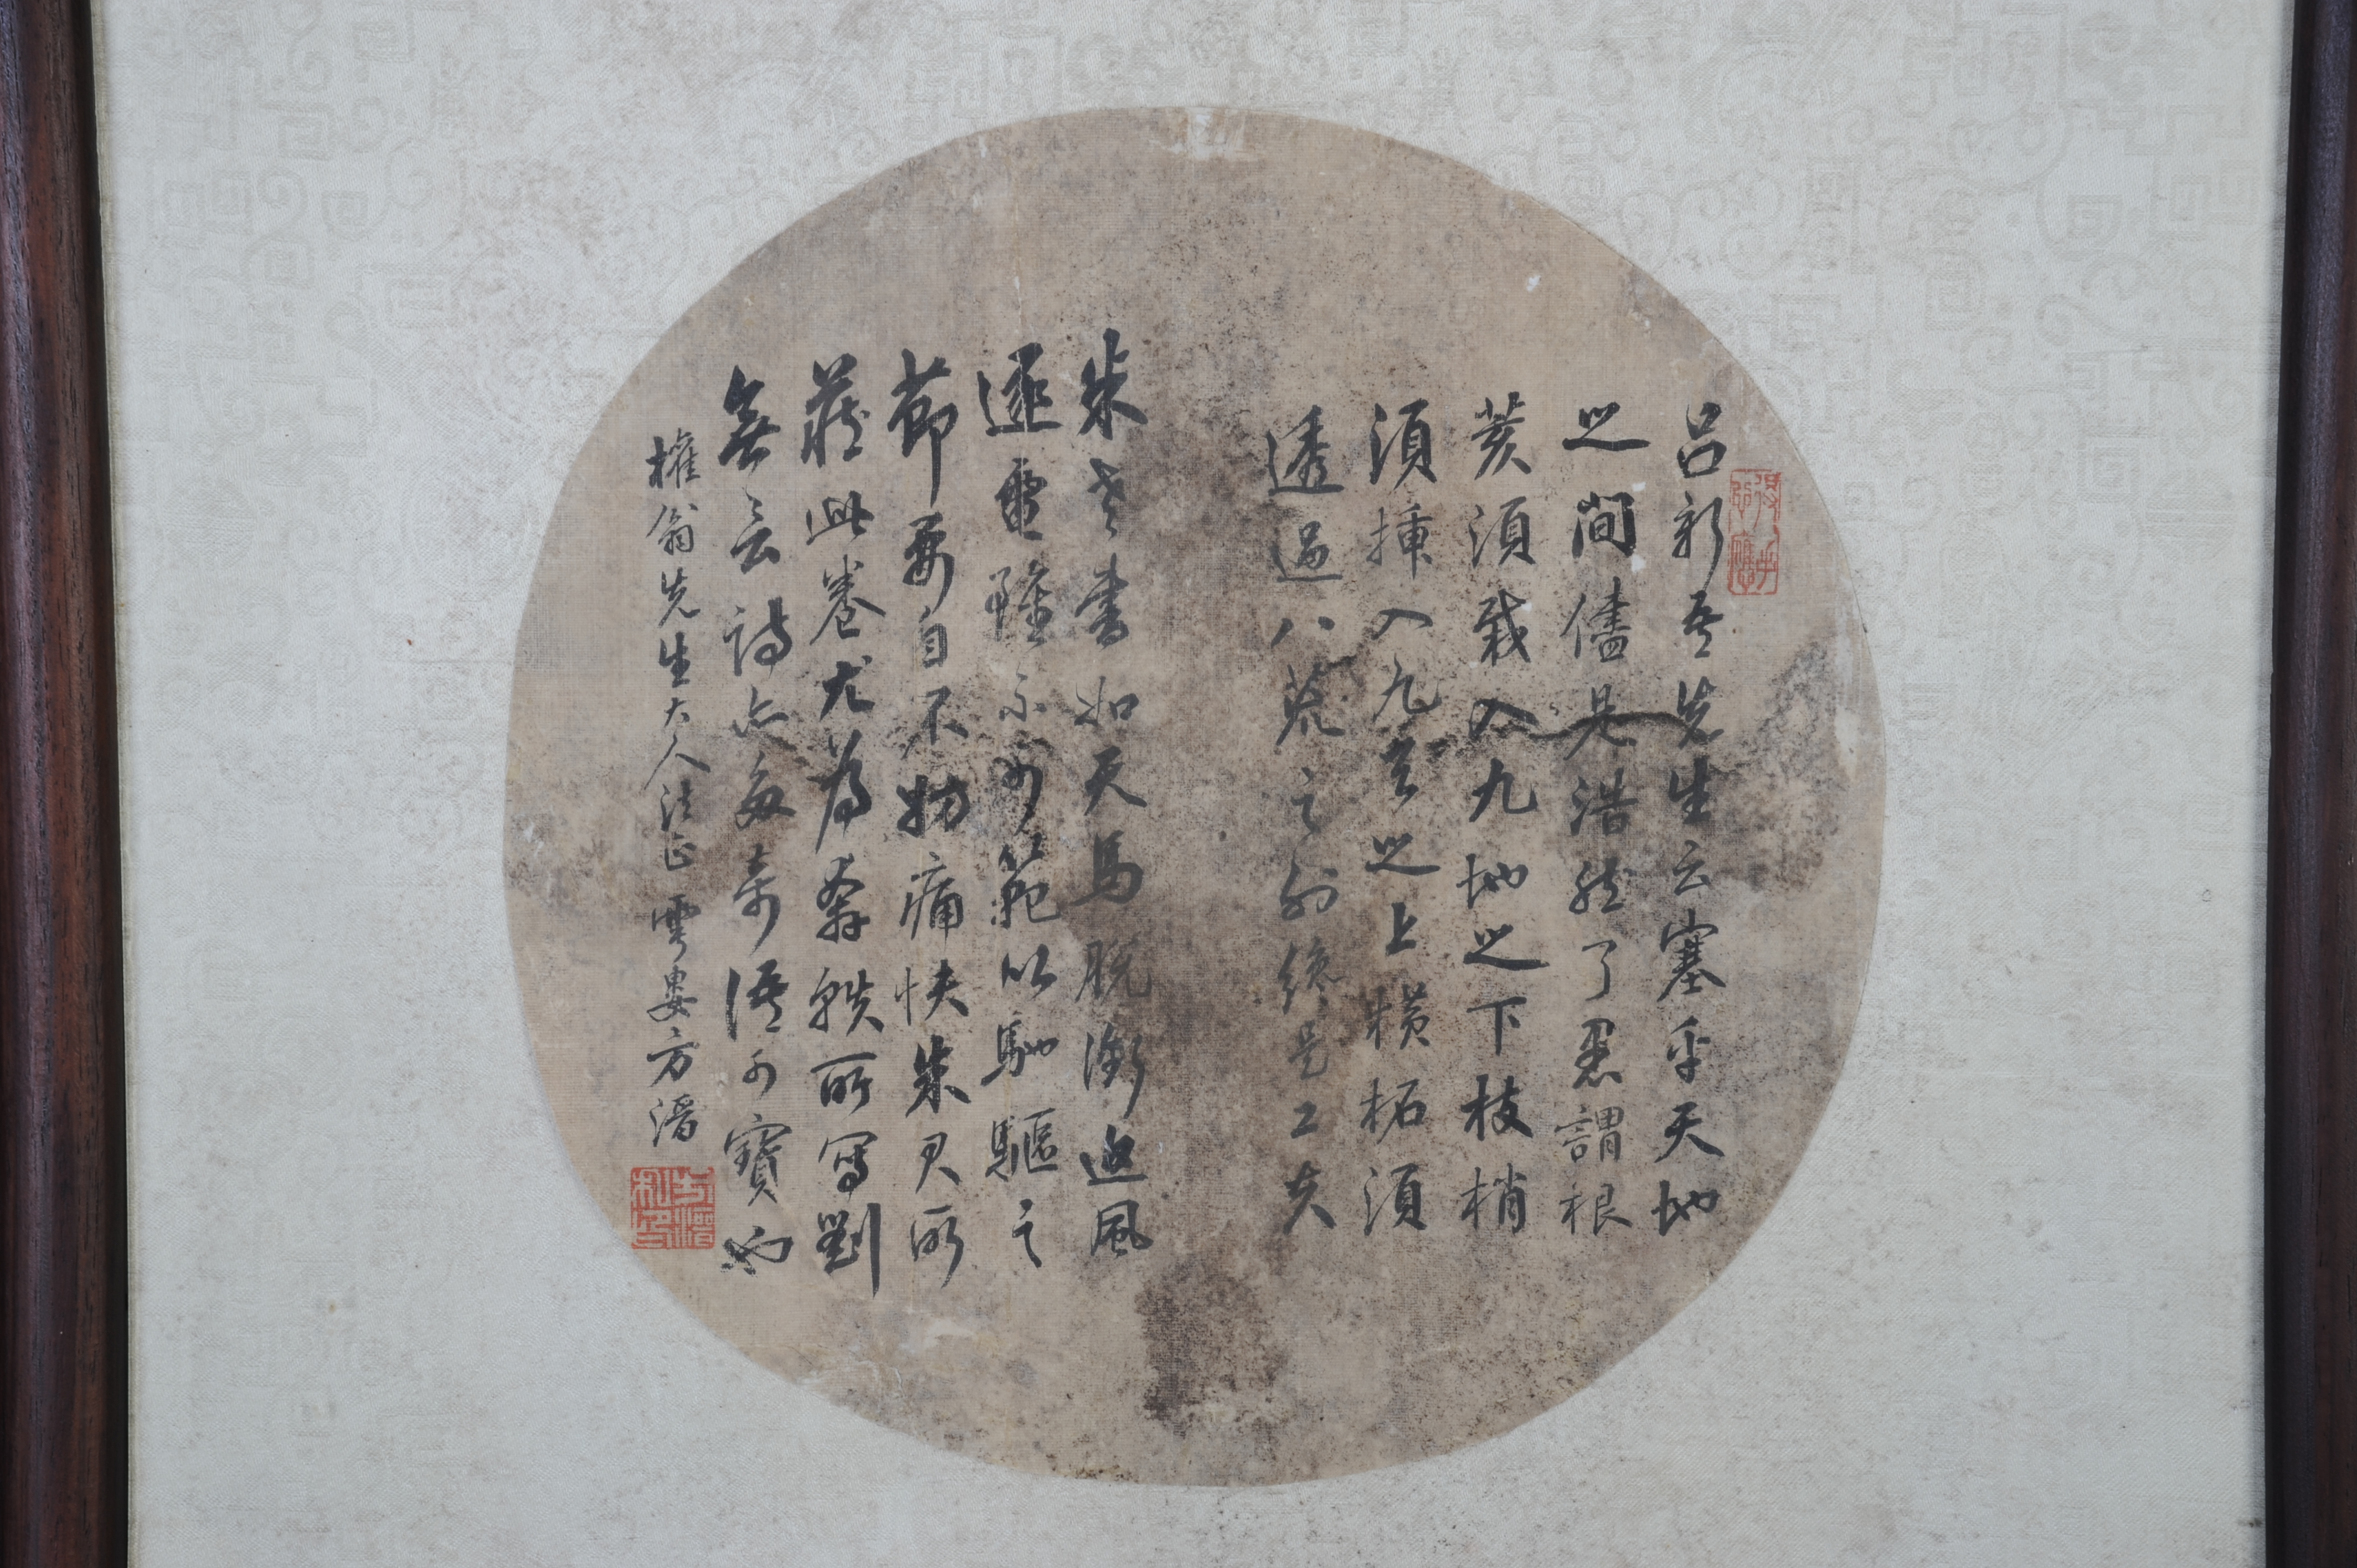 得心應手
吕新吾先生云塞乎天地
之間儘是浩然了愚謂根
荄須栽入九地之下枝梢
須插入九玄之上橫柘須
透過八荒之外終是工夫
朱老書如天馬脱銜追風
逐電雖不可範以馳驅之
節要自不妨痛快朱君所
藏此卷尤為奔軼所寫劉
無言詩亦多奇語可寶也
權翁先生大人法正 雲婁方濬